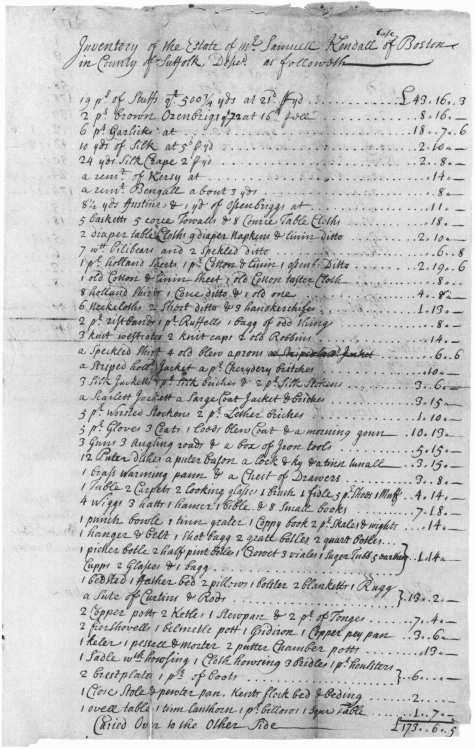 late
Inventory of the Estate of mr. Samuell Kendall of Boston
in County of Suffolk Desed. as followeth
19 ps. of Stuffs qt. 500 3/4 yds at 21d. ₱ yd £43.16.3
2 ps. brown Ozenbrigs at 16d. 8.16.
6 ps. Garlicks at 18.7.6
10 yds of Silk at 5s ₱ yd 2.10.
24 yds Silk Crape 2s ₱ yd 2.8.
a remt. of Kersy at .14.
a remt. Bengall about 3 yds .8.
8 1/2 yds fustine & 1 yd of Ossenbriggs at .11.
5 basketts 5 corce Towalls & 8 Cource Table Cloths .18.
2 diaper table Cloths 9 diaper Napkens & linin ditto 2.10.
7 wtt. Pilibears and 2 Speckled ditto .6.8
1 pr. holland Sheets 1 pr. Cotton & linin 1 ossenb: Ditto 2.19.6
1 old Cotton & linin Sheet 1 old Cotton tafter Cloth .8.
8 holland Shirts 1 Corce ditto & 1 old one 4.8.
6 Neckcloths 2 Short ditto & 3 handkerchifes 1.13.
2 pr. ristbands 1 pr. Ruffells 1 bagg of odd things .8.
3 knit westcotes 2 knit caps 2 old Robbins .14.
a Speckled Shirt 4 old blew aprons .6.6
a Striped holld. Jacket a pr. Cherydery britches .10.
3 Silk Jacketts 1 pr. Silk briches & 2 pr. Silk Stokens 3.6.
a Scarlett Jackett a Large Coat Jacket & briches 3.15.
5 pr. Worsted Stockens 2 pr. Lether briches 1.10.
5 pr. Gloves 3 Coats 1 Loods blew Coat & a morning gown 10.13.
3 Guns 3 Angling roads & a box of Iron tools 5.15.
12 Puter dishes a puter bason a Cock & ky & a tinn tunall 3.15.
1 brass Warming pann & a Chest of Drawers 3.8.
1 Table 2 Carpets 2 looking glases 1 brush 1 fidle 5 pr. Shoos 1 Muff 4.14.
4 Wiggs 3 hatts 1 hamer 1 bible & 8 Small books 7.18.
1 punch bowle 1 tinn grater 1 Coppy book 2 pr. Skales & wights .14.
1 hanger & belt 1 Shot bagg 2 grall botles 2 quart botles
1 picker botle 2 half pint botles 1 Crowet 3 vialls 1 Suger Tubb 5 earthen } 1.14.
Cupps 2 Glasses & 1 bagg
1 bedsted 1 feather bed 2 pillows 1 bolster 2 blanketts 1 Rugg
a Sute of Curtins & Rods } 13.2.
2 Copper potts 2 Ketles 1 Stewpan & 2 pr. of Tonges 7.4.
2 fier Shovells 1 belmetle pott 1 Gridiron 1 Copper pey pan 3.6.
1 keler 1 pestell & morter 2 putter Chamber potts .13.
1 Sadle wth. howsing 1 Cloth howsing 3 bridles 1 pr. houlsters
2 brestplates 1 pr. of boots } 6.
1 Close Stole & pewter pan, Kents flock bed & beding 2.
1 ovell table 1 tinn lanthorn 1 pr. bellows 1 Squr Table 1.7.
Caried Over to the Other Side £173.6.5